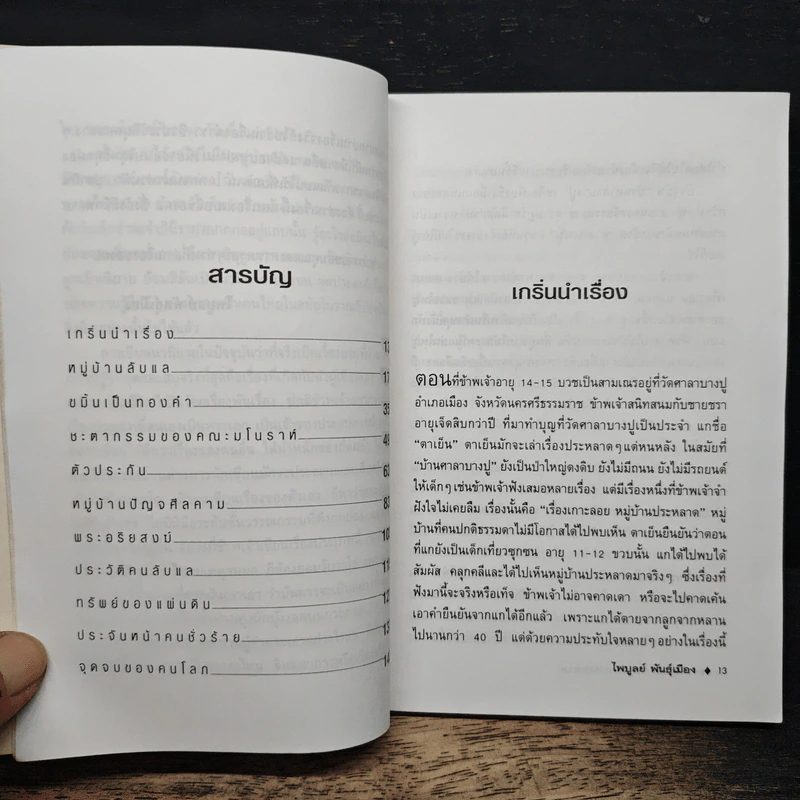 สารบัญ
เกริ่นนำเรื่อง
หมู่บ้านลับแล 17
ขมิ้นเป็นทองคำ 35
ชะตากรรมของคณะมโนราห์ 49
ตัวประกัน 63
หมู่บ้านปัญจศีลคาม 83
พระอริยสงฆ์
ประวัติคนลับแล
ทรัพย์ของแผ่นดิน
ประจันหน้าคนชั่วร้าย
จุดจบของคนโลภ
เกริ่นนำเรื่อง
ตอนที่ข้าพเจ้าอายุ 14-15 บวชเป็นสามเณรอยู่ที่วัดศาลาบางปู
อำเภอเมือง จังหวัดนครศรีธรรมราช ข้าพเจ้าสนิทสนมกับชายชรา
อายุเจ็ดสิบกว่าปี ที่มาทำบุญที่วัดศาลาบางปูเป็นประจำ แกชื่อ
“ตาเย็น” ตาเย็นมักจะเล่าเรื่องประหลาดๆ แต่หนหลัง ในสมัยที่
“บ้านศาลาบางปู” ยังเป็นป่าใหญ่ดงดิบ ยังไม่มีถนน ยังไม่มีรถยนต์
ให้เด็กๆ เช่นข้าพเจ้าฟังเสมอหลายเรื่อง แต่มีเรื่องหนึ่งที่ข้าพเจ้าจำ
ฝังใจไม่เคยลืม เรื่องนั้นคือ “เรื่องเกาะลอย หมู่บ้านประหลาด” หมู่
บ้านที่คนปกติธรรมดาไม่มีโอกาสได้ไปพบเห็น ตาเย็นยืนยันว่าตอน
ที่แกยังเป็นเด็กเที่ยวซุกซน อายุ 11-12 ขวบนั้น แกได้ไปพบได้
สัมผัส คลุกคลีและได้ไปเห็นหมู่บ้านประหลาดมาจริงๆ ซึ่งเรื่องที่
ฟังมานี้จะจริงหรือเท็จ ข้าพเจ้าไม่อาจคาดเดา หรือจะไปคาดเค้น
เอาคำยืนยันจากแกได้อีกแล้ว เพราะแกได้ตายจากลูกจากหลาน
ไปนานกว่า 40 ปี แต่ด้วยความประทับใจหลายๆ อย่างในเรื่องนี้
ไพบูลย์ พันธุ์เมือง ◆ 13